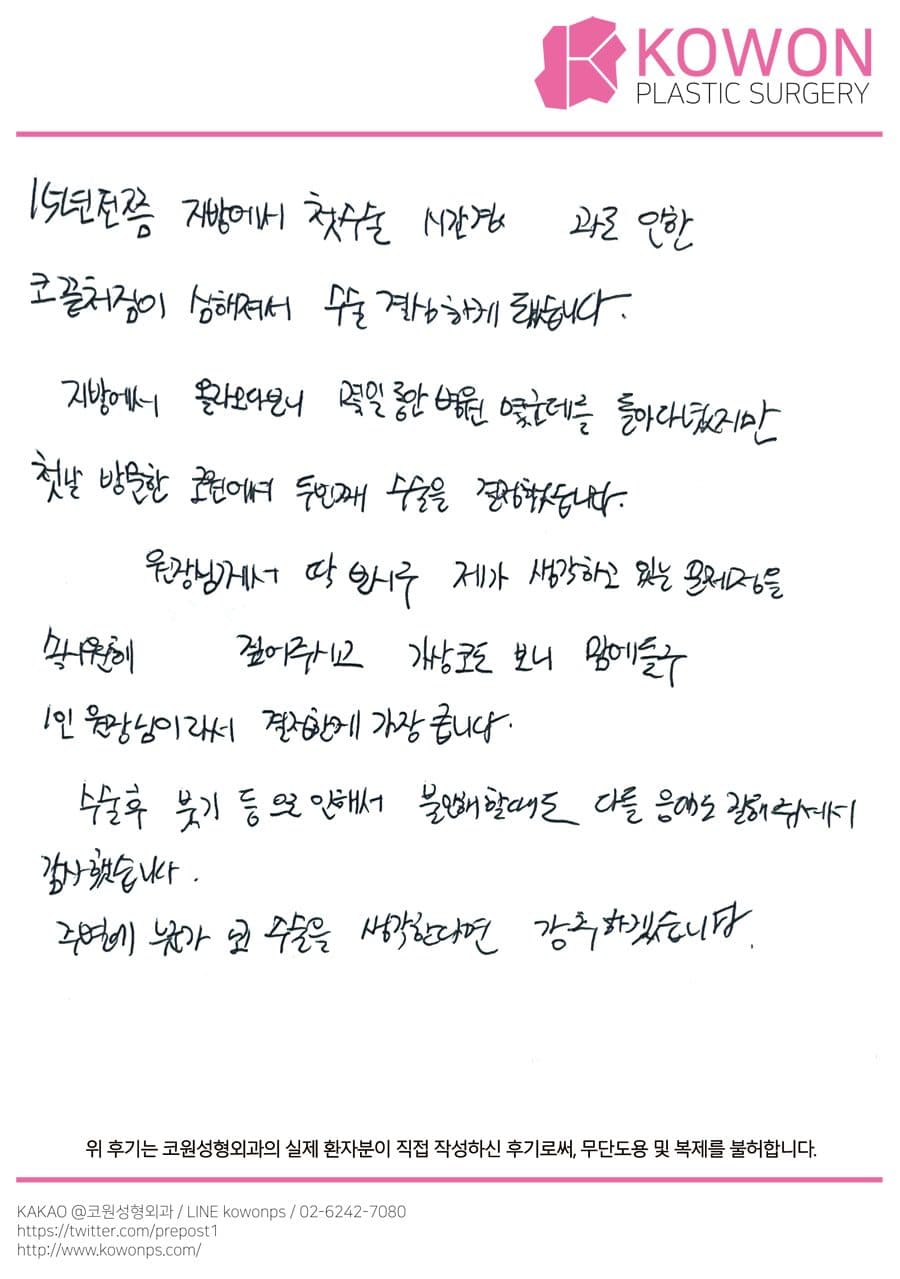 KOWON
PLASTIC SURGERY
15년전쯤 지방에서 첫수술 시간경 과로 인한
코끝처짐이 심해져서 수술 결심하게 됐습니다.
지방에서 올라오다보니 몇일 동안 병원 몇군데를 돌아다녔지만
첫날 방문한 코원에서 두번째 수술을 결정했습니다.
원장님께서 딱 보시구 제가 생각하고 있는 문제점을
속시원히 짚어주시고 가상코도 보니 맘에들구
1인 원장님이라서 결정한게 가장 큽니다.
수술후 붓기 등으로 인해서 불안해 할때도 다들 응대도 잘해주셔서
감사했습니다.
주변에 누군가 코 수술을 생각한다면 강추하겠습니다.
위 후기는 코원성형외과의 실제 환자분이 직접 작성하신 후기로써, 무단도용 및 복제를 불허합니다.
KAKAO @코원성형외과 / LINE kowonps / 02-6242-7080
https://twitter.com/prepost1
http://www.kowonps.com/